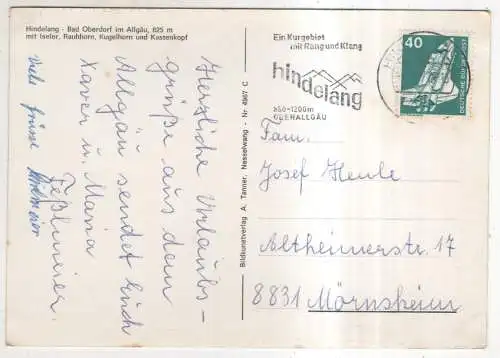 Hindelang - Bad Oberdorf im Allgäu, 825 m
mit Iseler, Rauhhorn, Kugelhorn und Kastenkopf
Herzliche Urlaubs-
grüße aus dem
Allgäu sendet Euch
Xaver u. Maria
viele Grüsse
Bildkunstverlag A. Tanner, Nesselwang - Nr 4967 D
Ein Kurgebiet
mit Rang und Klang
hindelang
850-1200m
OBERALLGÄU
40
DEUTSCHE BUNDESPOST
Fam.
Josef Heule
Altheimerstr. 17
8831 Mörnsheim